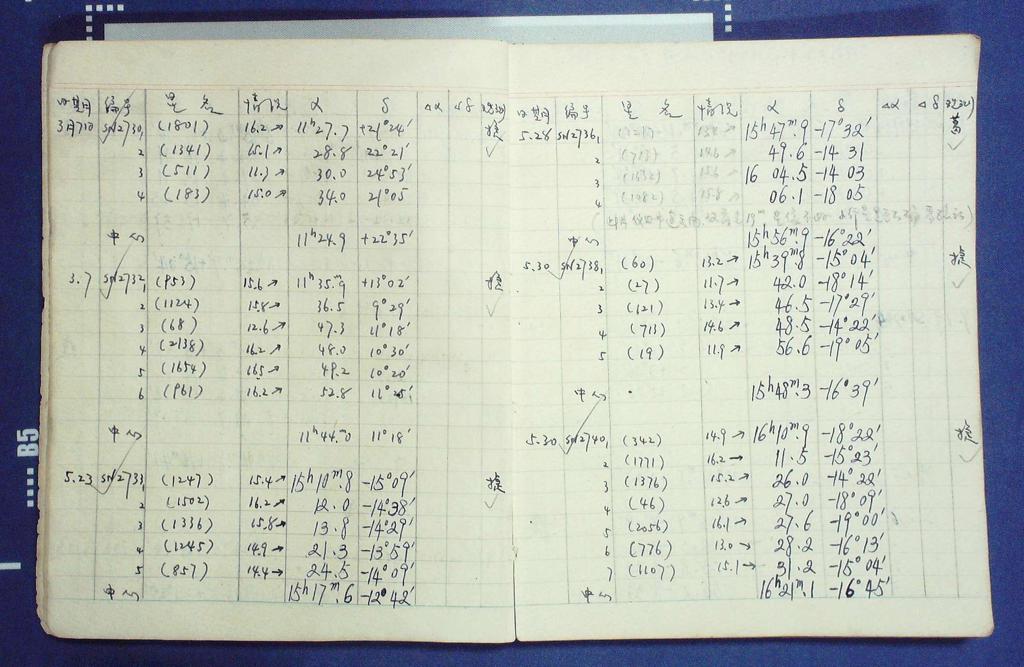 日期 编号 星名 情况 α δ Δα Δδ 观测
3月7日 SN2730,1 (1801) 16.2→ 11ʰ27.7 +21°24′ 捷
2 (1341) 15.1→ 28.8 22°21′ ✓
3 (511) 11.3→ 30.0 24°53′
4 (183) 15.0→ 34.0 21°05
中心 11ʰ24.9 +22°35′
3.7 SN2732,1 (953) 15.6→ 11ʰ35.ᵐ9 +13°02′ 捷
2 (1124) 15.8→ 36.5 9°29′ ✓
3 (68) 12.6→ 47.3 11°18′
4 (2138) 16.2→ 48.0 10°30′
5 (1654) 16.5→ 49.2 10°20′
6 (961) 16.2→ 52.8 11°25′
中心 11ʰ44.ᵐ0 11°18′
5.23 SN2733,1 (1247) 15.4→ 15ʰ10ᵐ.8 -15°09′ 捷
2 (1502) 16.2→ 12.0 -14°38′ ✓
3 (1336) 15.8→ 13.8 -14°29′
4 (1245) 14.9→ 21.3 -13°59′
5 (857) 14.4→ 24.5 -14°09′
中心 15ʰ17ᵐ.6 -12°42′
日期 编号 星名 情况 α δ Δα Δδ 观测
5.28 SN2736,1 15ʰ47ᵐ.9 -17°32′ 葛
2 (713) 14.6→ 49.6 -14 31 ✓
3 (1632) 16 04.5 -14 03
4 (1082) 15.8→ 06.1 -18 05
中心 15ʰ56ᵐ.9 -16°22′
5.30 SN2738,1 (60) 13.2→ 15ʰ39ᵐ.8 -15°04′ 捷
2 (27) 11.7→ 42.0 -18°14′ ✓
3 (121) 13.4→ 46.5 -17°29′
4 (713) 14.6→ 48.5 -14°22′
5 (19) 11.9→ 56.6 -19°05′
中心 15ʰ48ᵐ.3 -16°39′
5.30 SN2740,1 (342) 14.9→ 16ʰ10ᵐ.9 -18°22′ 捷
2 (1771) 16.2→ 11.5 -15°23′ ✓
3 (1376) 15.2→ 26.0 -14°22′
4 (46) 12.6→ 27.0 -18°09′
5 (2056) 16.1→ 27.6 -19°00′
6 (776) 13.0→ 28.2 -16°13′
7 (1107) 15.1→ 31.2 -15°04′
中心 16ʰ21ᵐ.1 -16°45′
B5